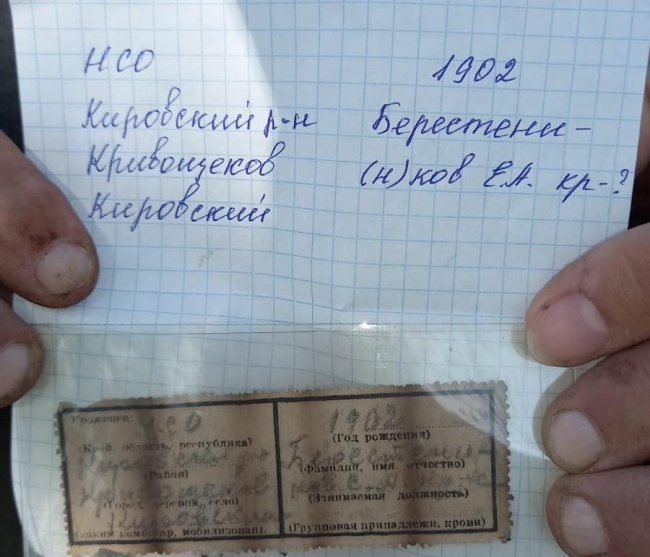 НСО
Кировский р-н
Кривощеков
Кировский
1902
Берестени-
(н)ков Е.А. кр-?
Уроженец: НСО
(Край, область, республика)
(Район)
(Город, деревня, село)
(каким комиссар. мобилизован)
1902
(Год рождения)
Берестени-
(Фамилия, имя отчество)
(Занимаемая должность)
(Групповая принадлежн. крови)